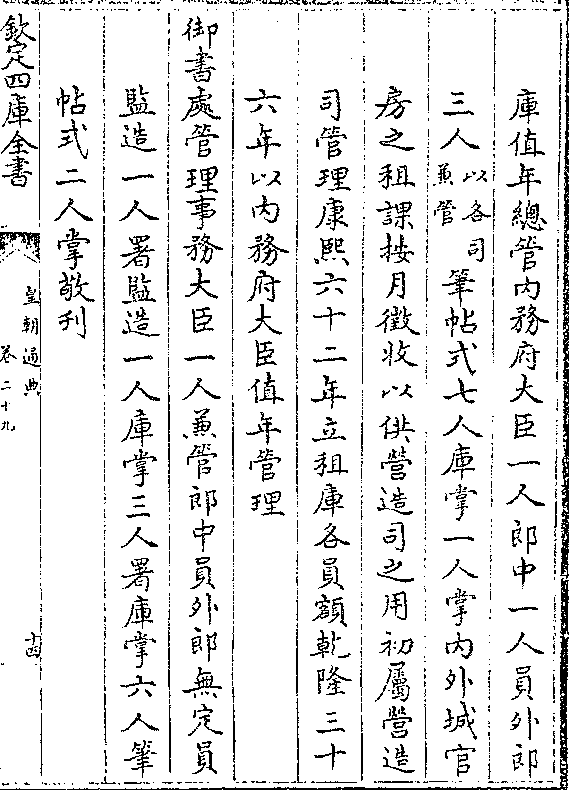 庫值年總管內務府大臣一人郎中一人員外郎
三人以各司兼管筆帖式七人庫掌一人掌內外城官
房之租課按月徵收以供營造司之用初屬營造
司管理康熙六十二年立租庫各員額乾隆三十
六年以內務府大臣值年管理
御書處管理事務大臣一人兼管郎中員外郎無定員
監造一人署監造一人庫掌三人署庫掌六人筆
帖式二人掌敬刊
欽定四庫全書
皇朝通典
卷二十九
十四